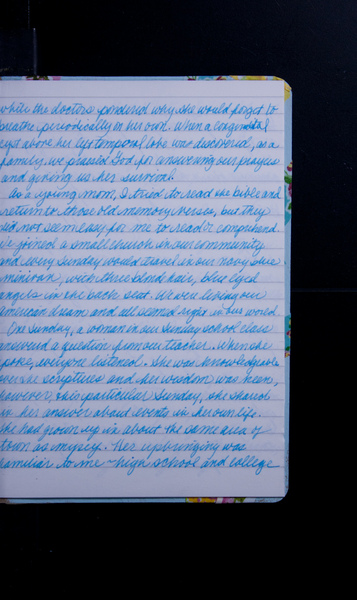 while the doctors pondered why she would forget to
breathe periodically on her own. When a congenital
cyst above her left temporal lobe was discovered, as a
family, we praised God for answering our prayers
and giving us her survival.
As a young mom, I tried to read the bible and
return to those old memory verses, but they
did not seem easy for me to read or comprehend.
We joined a small church in our community
and every Sunday would travel in our navy blue
minivan, with three blond hair, blue eyed
angels in the back seat. We were living our
American dream and all seemed right in our world.
One Sunday, a woman in our Sunday school class
answered a question from our teacher. When she
spoke, everyone listened. She was knowledgeable
over the scriptures and her wisdom was keen,
however, this particular Sunday, she shared
in her answer about events in her own life.
She had grown up in about the same area of
town as myself. Her upbringing was
familiar to me - high school and college